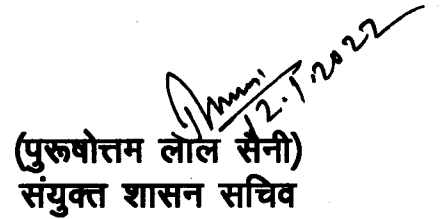 12.1.2022
(पुरूषोत्तम लाल सैनी)
संयुक्त शासन सचिव